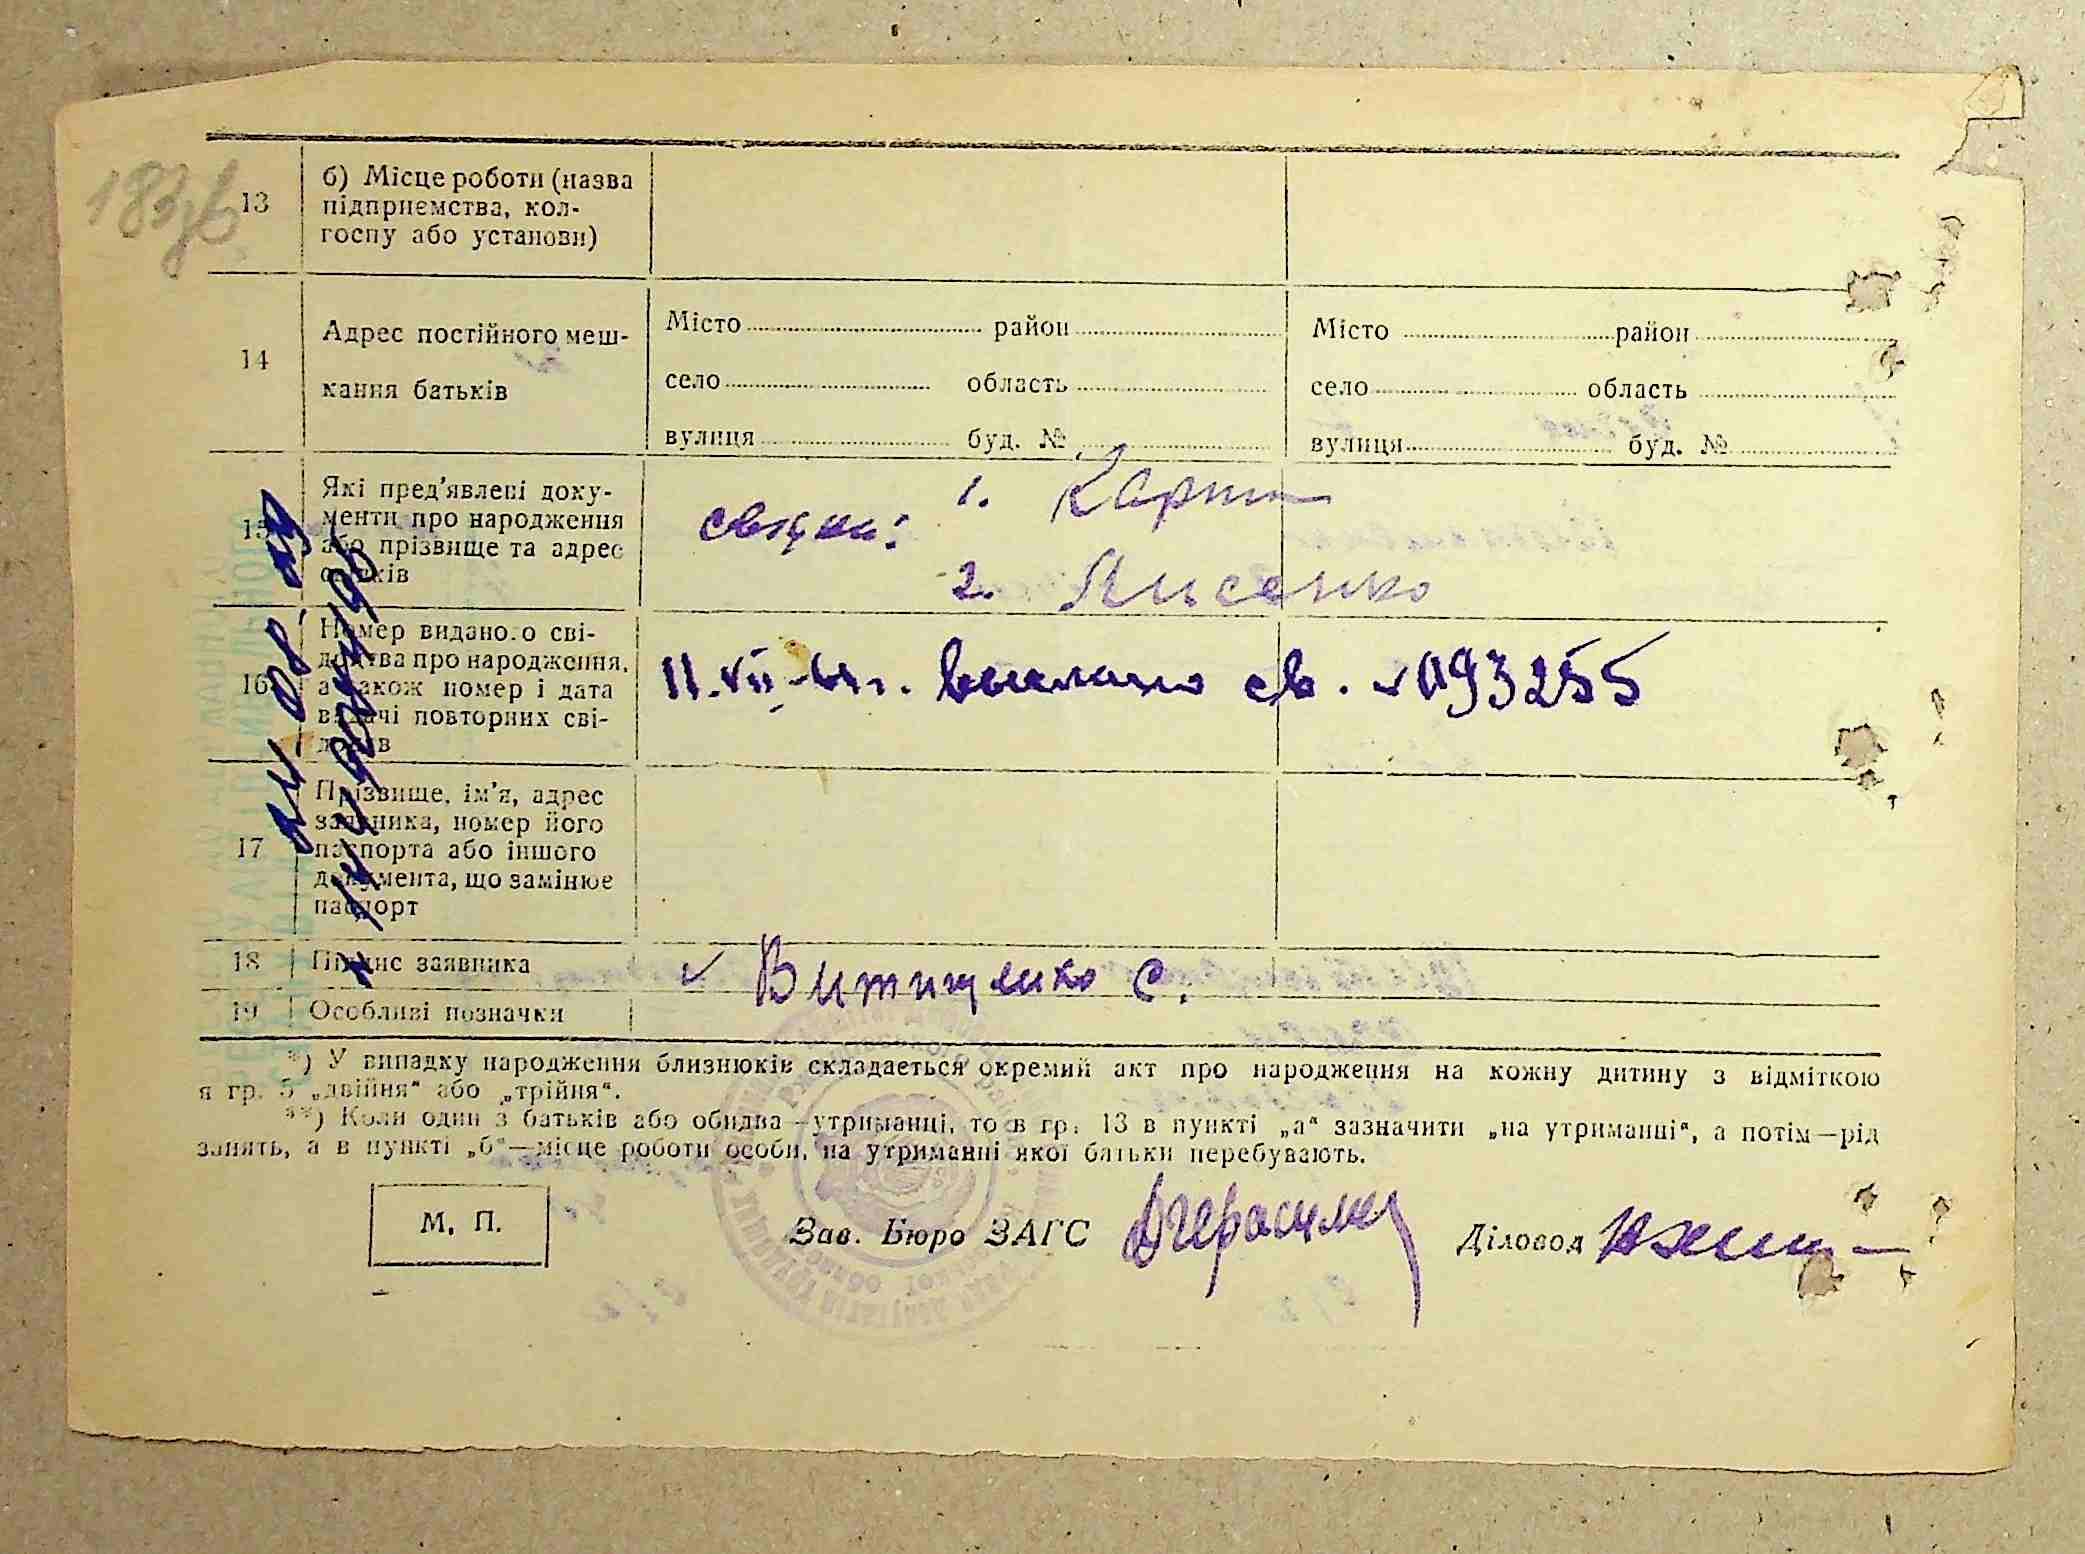 183зв
13
б) Місце роботи (назва
підприємства, кол-
госпу або установи)
14
Адрес постійного меш-
кання батьків
Місто район
село область
вулиця буд. №
Місто район
село область
вулиця буд. №
15
Які пред'явлені доку-
менти про народження
або прізвище та адрес
свідків
1.
2. Лисенко
16
Номер виданого сві-
доцтва про народження,
а також номер і дата
видачі повторних сві-
доцтв
св. № 093255
17
Прізвище, ім'я, адрес
заявника, номер його
паспорта або іншого
документа, що замінює
паспорт
18
Підпис заявника
С.
19
Особливі позначки
*) У випадку народження близнюків складається окремий акт про народження на кожну дитину з відміткою
я гр. 5 „двійня“ або „трійня“.
**) Коли один з батьків або обидва—утриманці, то в гр. 13 в пункті „а“ зазначити „на утриманні“, а потім—рід
занять, а в пункті „б“—місце роботи особи, на утриманні якої батьки перебувають.
М. П.
Зав. Бюро ЗАГС
Діловод